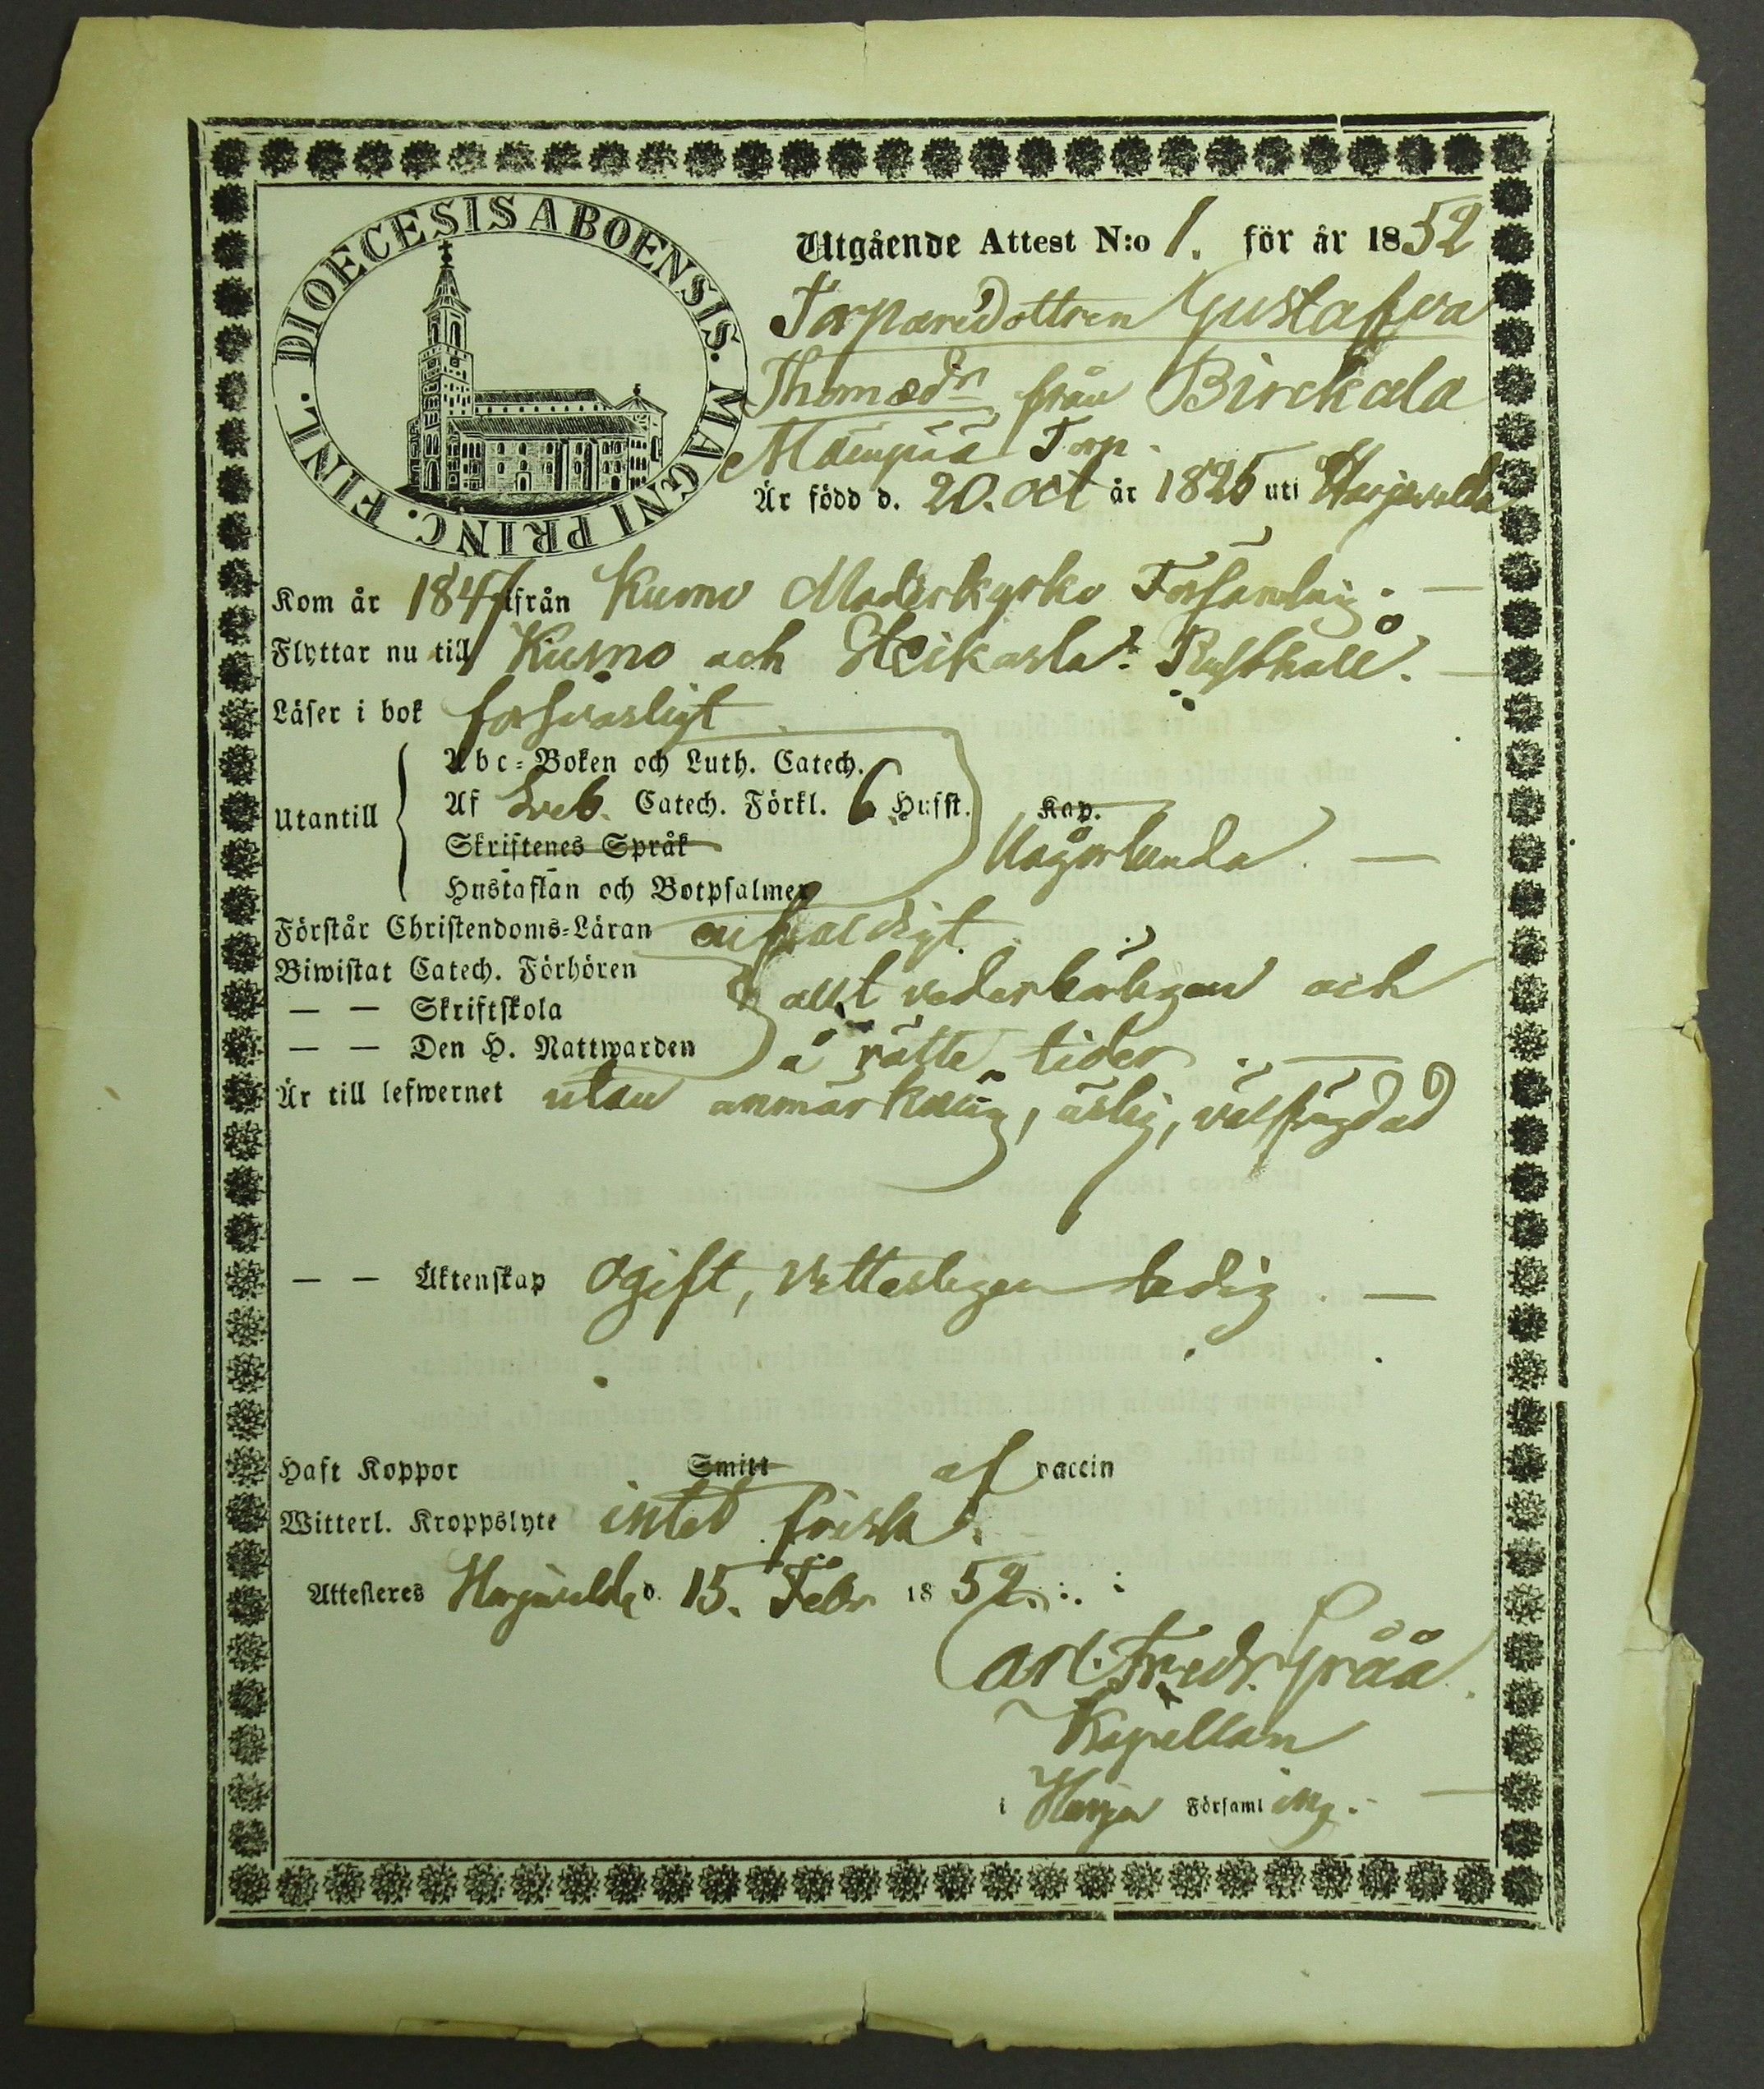 DIOECESIS ABOENSIS. MAGNI PRINC. FINL.
Utgående Attest N:o 1. för år 1852
Torparedottren Gustafva
Thomædr från Birckala
Torp.
Är född d. 20. Oct år 1826 uti Harjavalda
Kom år 1847 ifrån Kumo Moderkyrko Församling. —
Flyttar nu till Kumo och Rusthåll. —
Läser i bok försvarligt
Utantill
Abc-Boken och Luth. Catech.
Af Sveb. Catech. Förkl. 6 Hufst. Kap.
Skriftenes Språk
Någorlunda. —
Hustaflan och Botpsalmer
Förstår Christendoms-Läran enfaldigt.
Biwistat Catech. Förhören
— — Skriftskola
allt vederbörligen och
— — Den H. Nattwarden
å rätta tider. —
Är till lefwernet utan anmärkning, ärlig, välfrägdad
— — Äktenskap ogift, vetterligen ledig. —
Haft Koppor Smitt af vaccin
Witterl. Kroppslyte intet frisk.
Attesteres Harjavalda d. 15. Febr 1852.
Carl Fredr. Gråå.
Kapellan
i Harja Församling. —